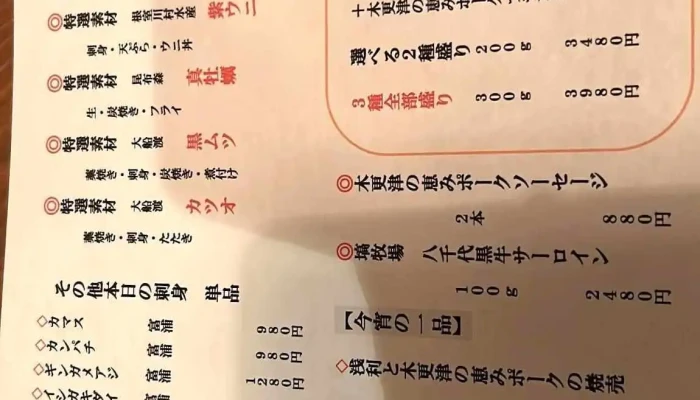 ◎特選素材 根室川村水産 紫ウニ
刺身・天ぷら・ウニ丼
◎特選素材 昆布森 真牡蠣
生・炭焼き・フライ
◎特選素材 大船渡 黒ムツ
藁焼き・刺身・炭焼き・煮付け
◎特選素材 大船渡 カツオ
藁焼き・刺身・たたき
その他本日の刺身 単品
◇カマス 富浦 980円
◇カンパチ 富浦 980円
◇ギンガメアジ 富浦 1280円
◇イシガキダイ 富浦
十木更津の恵みポーク
選べる2種盛り 200g 3480円
3種全部盛り 300g 3980円
◎木更津の恵みポークソーセージ
2本 880円
◎塙牧場 八千代黒牛サーロイン
100g 2480円
【今宵の一品】
◇浅利と木更津の恵みポークの焼売